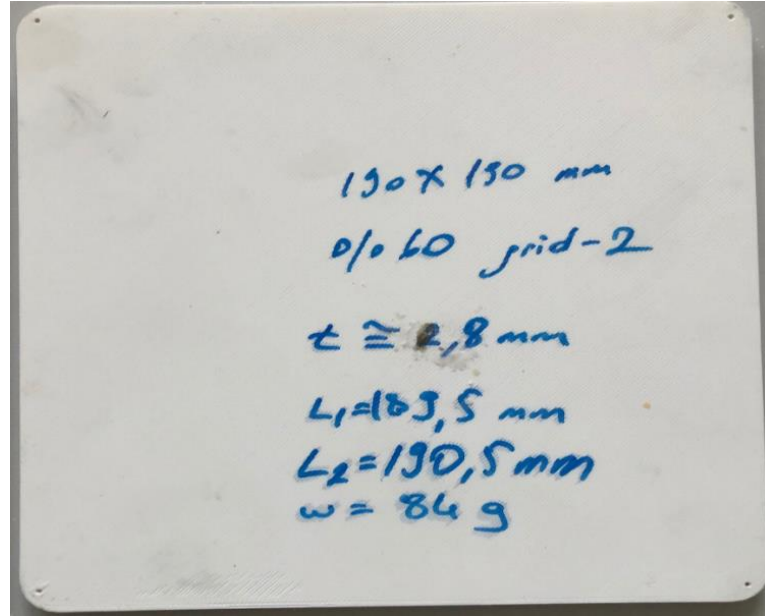 190 X 190 mm
%60 grid-2
t ≅ 2,8 mm
L₁=189,5 mm
L₂=190,5 mm
w = 84 g